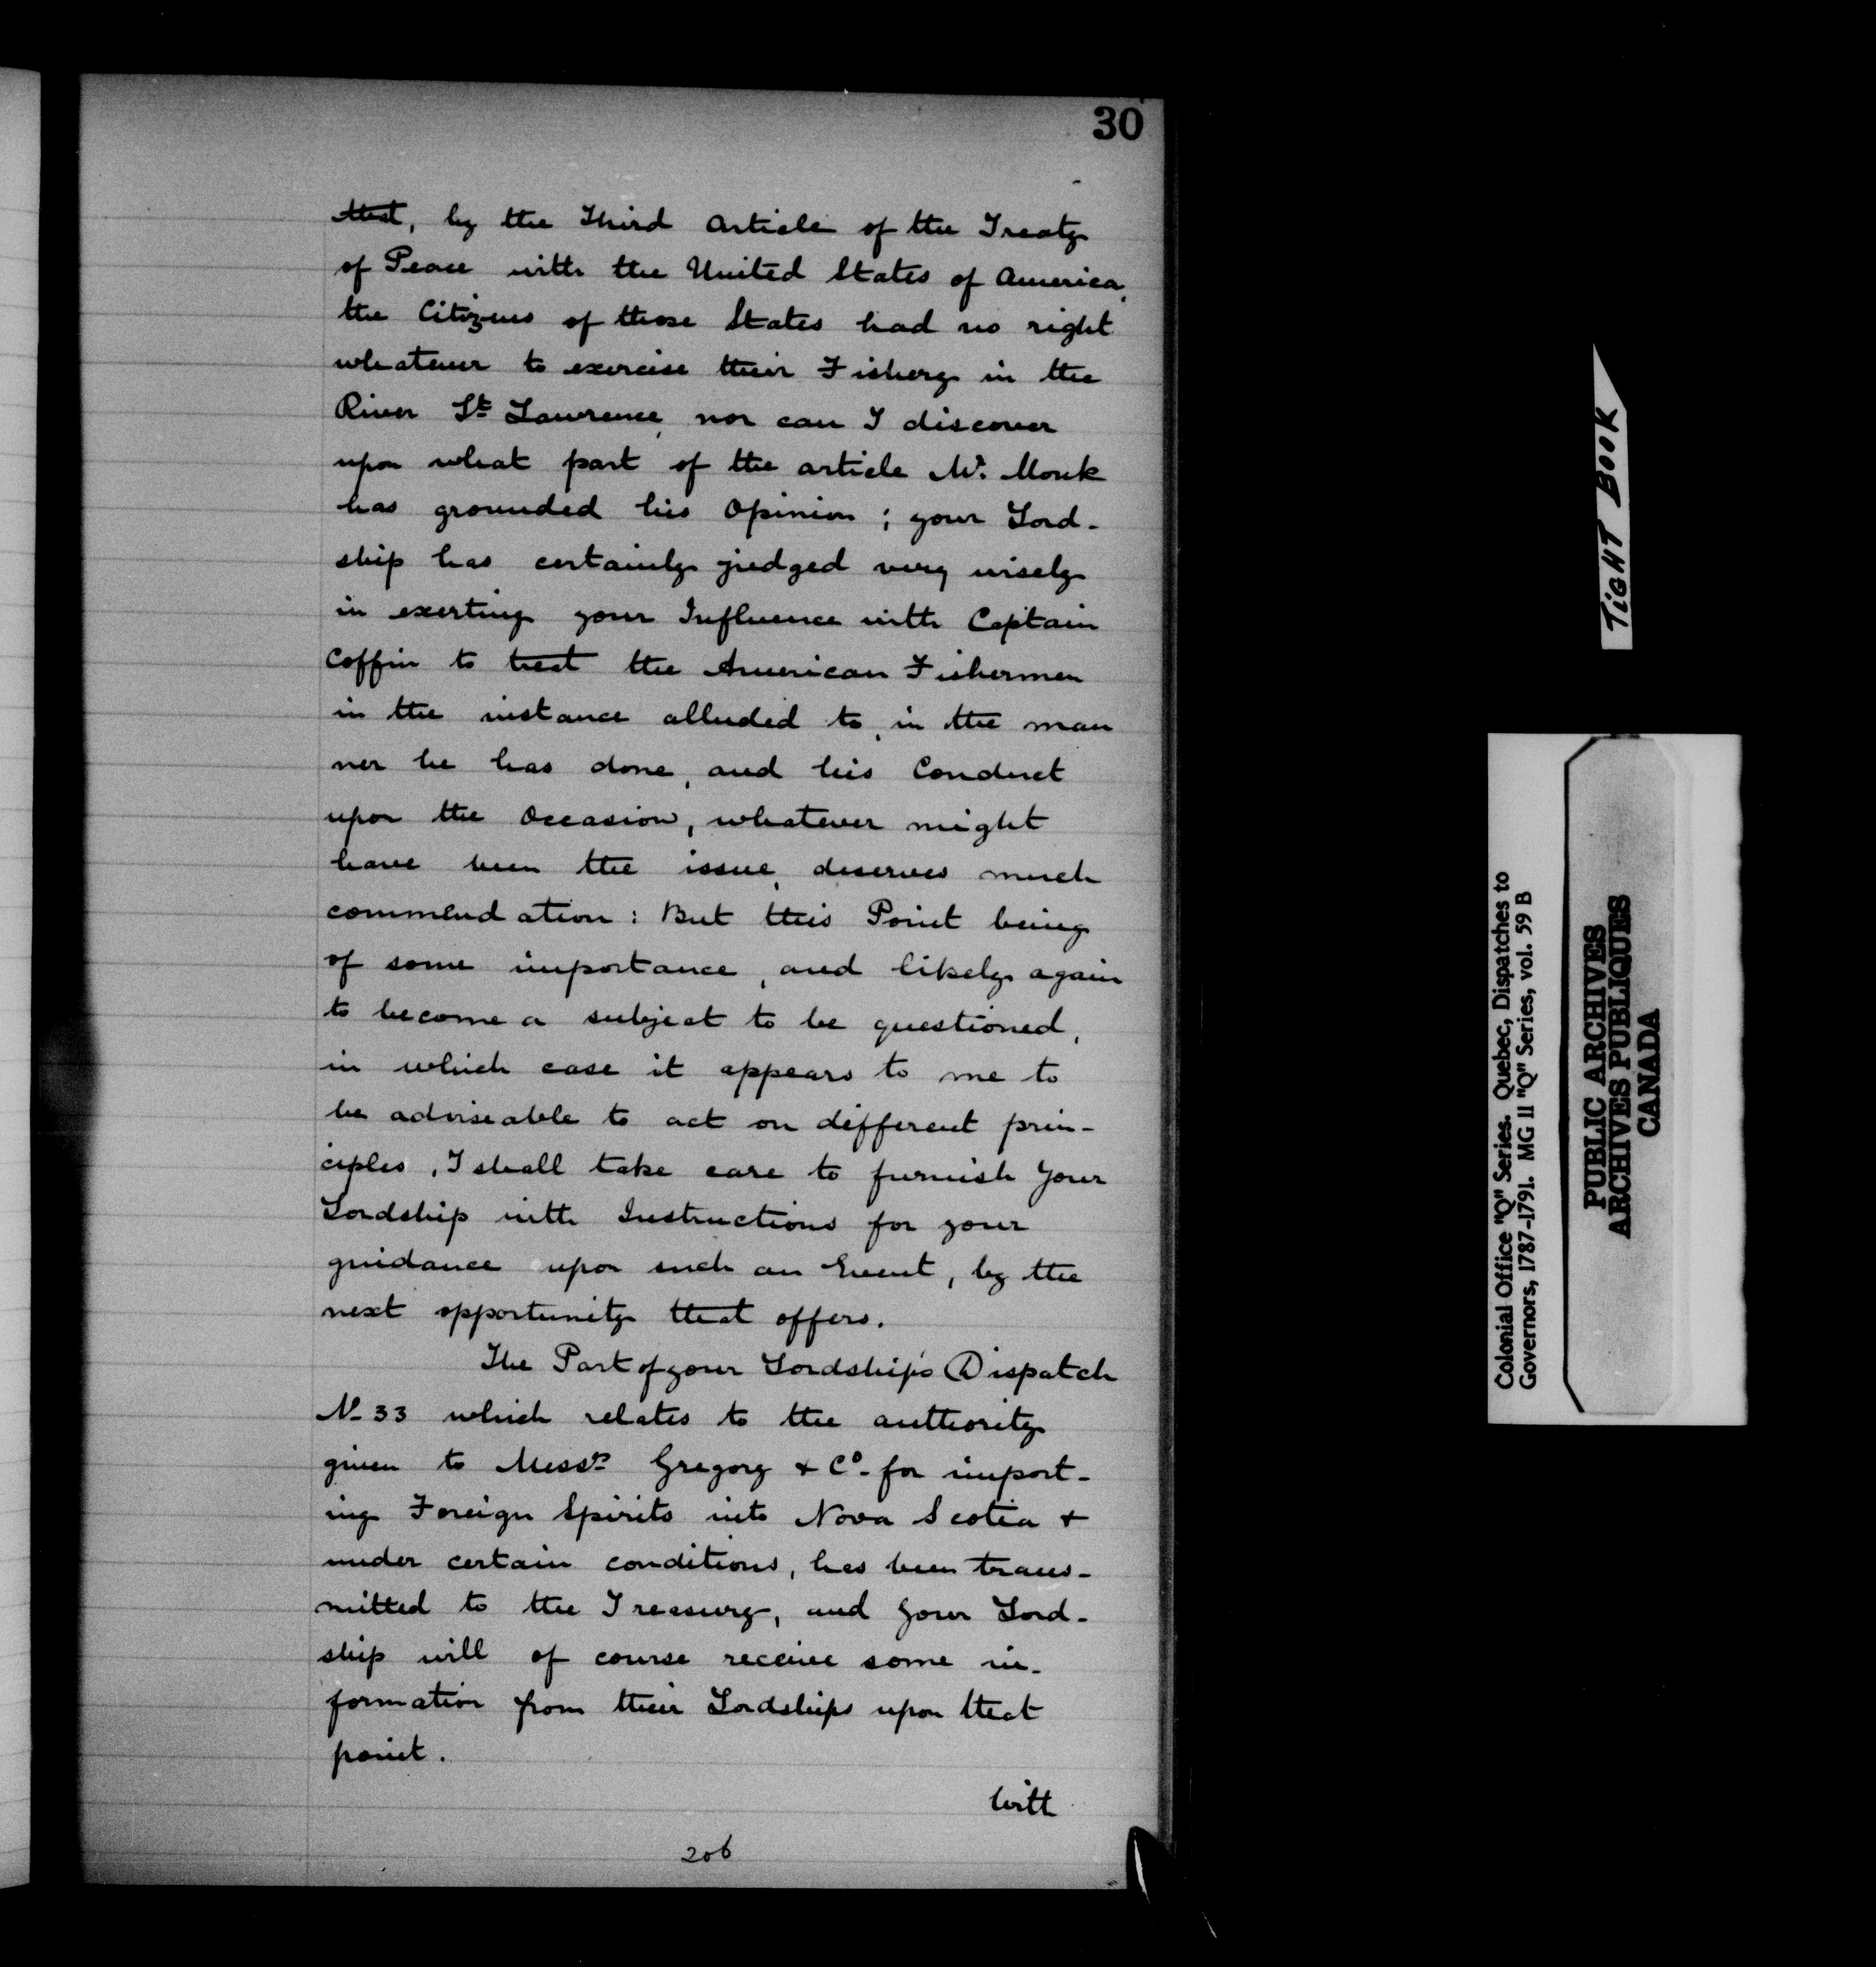 30
that, by the Third Article of the Treaty
of Peace with the United States of America,
the Citizens of those States had no right
whatever to exercise their Fishery in the
River St. Lawrence, nor can I discover
upon what part of the article Mr. Monk
has grounded his Opinion; your Lord-
ship has certainly judged very wisely
in exerting your Influence with Captain
Coffin to treat the American Fishermen
in the instance alluded to, in the man
ner he has done, and his Conduct
upon the Occasion, whatever might
have been the issue, deserves much
commendation: But this Point being
of some importance, and likely again
to become a subject to be questioned,
in which case it appears to me to
be adviseable to act on different prin-
ciples, I shall take care to furnish Your
Lordship with Instructions for your
guidance upon such an Event, by the
next opportunity that offers.
The Part of your Lordship's Dispatch
No 33 which relates to the authority
given to Messrs Gregory & Co. for import-
ing Foreign Spirits into Nova Scotia &
under certain conditions, has been trans-
mitted to the Treasury, and Your Lord-
ship will of course receive some in-
formation from their Lordships upon that
point.
With
206
TIGHT BOOK
Colonial Office "Q" Series. Quebec, Dispatches to
Governors, 1787-1791. MG 11 "Q" Series, vol. 59 B
PUBLIC ARCHIVES
ARCHIVES PUBLIQUES
CANADA